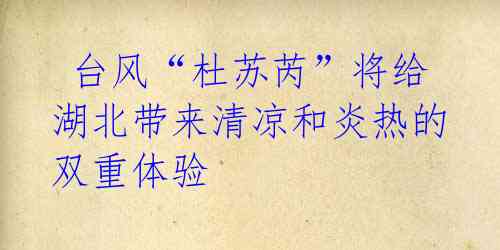 台风“杜苏芮”将给
湖北带来清凉和炎热的
双重体验